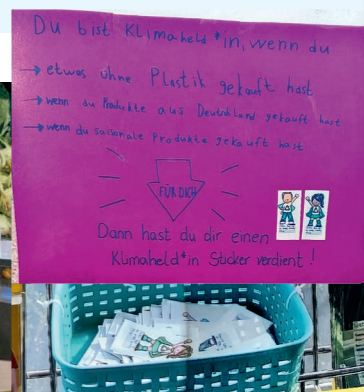 Du bist Klimaheld*in, wenn du
→ etwas ohne Plastik gekauft hast
→ wenn du Produkte aus Deutschland gekauft hast
→ wenn du saisonale Produkte gekauft hast
FÜR DICH
Dann hast du dir einen
Klimaheld*in Sticker verdient!